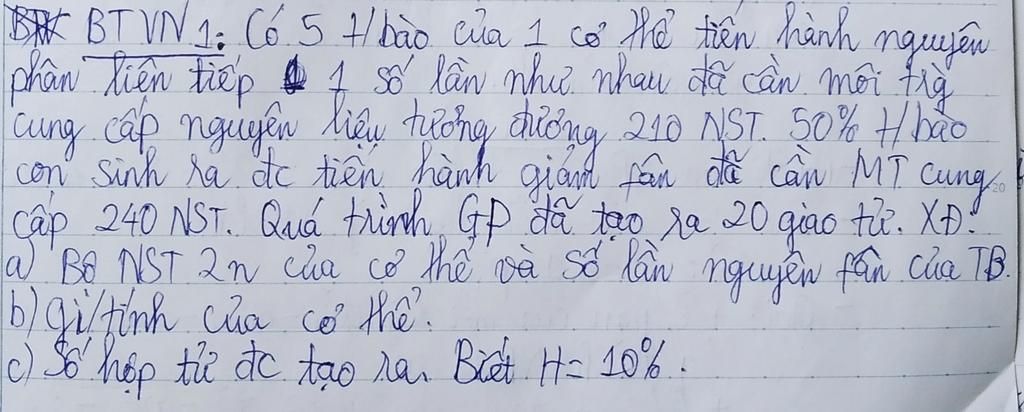 BTVN1: Có 5 t/bào của 1 cơ thể tiến hành nguyên
phân liên tiếp 1 số lần như nhau đã cần môi trg
cung cấp nguyên liệu tương đương 210 NST. 50% t/bào
con sinh ra đc tiến hành giảm fân đã cần MT cung
cấp 240 NST. Quá trình GP đã tạo ra 20 giao tử. XĐ:
a) Bộ NST 2n của cơ thể và số lần nguyên fân của TB.
b) gi/tính của cơ thể.
c) Số hợp tử đc tạo ra. Biết H = 10%.